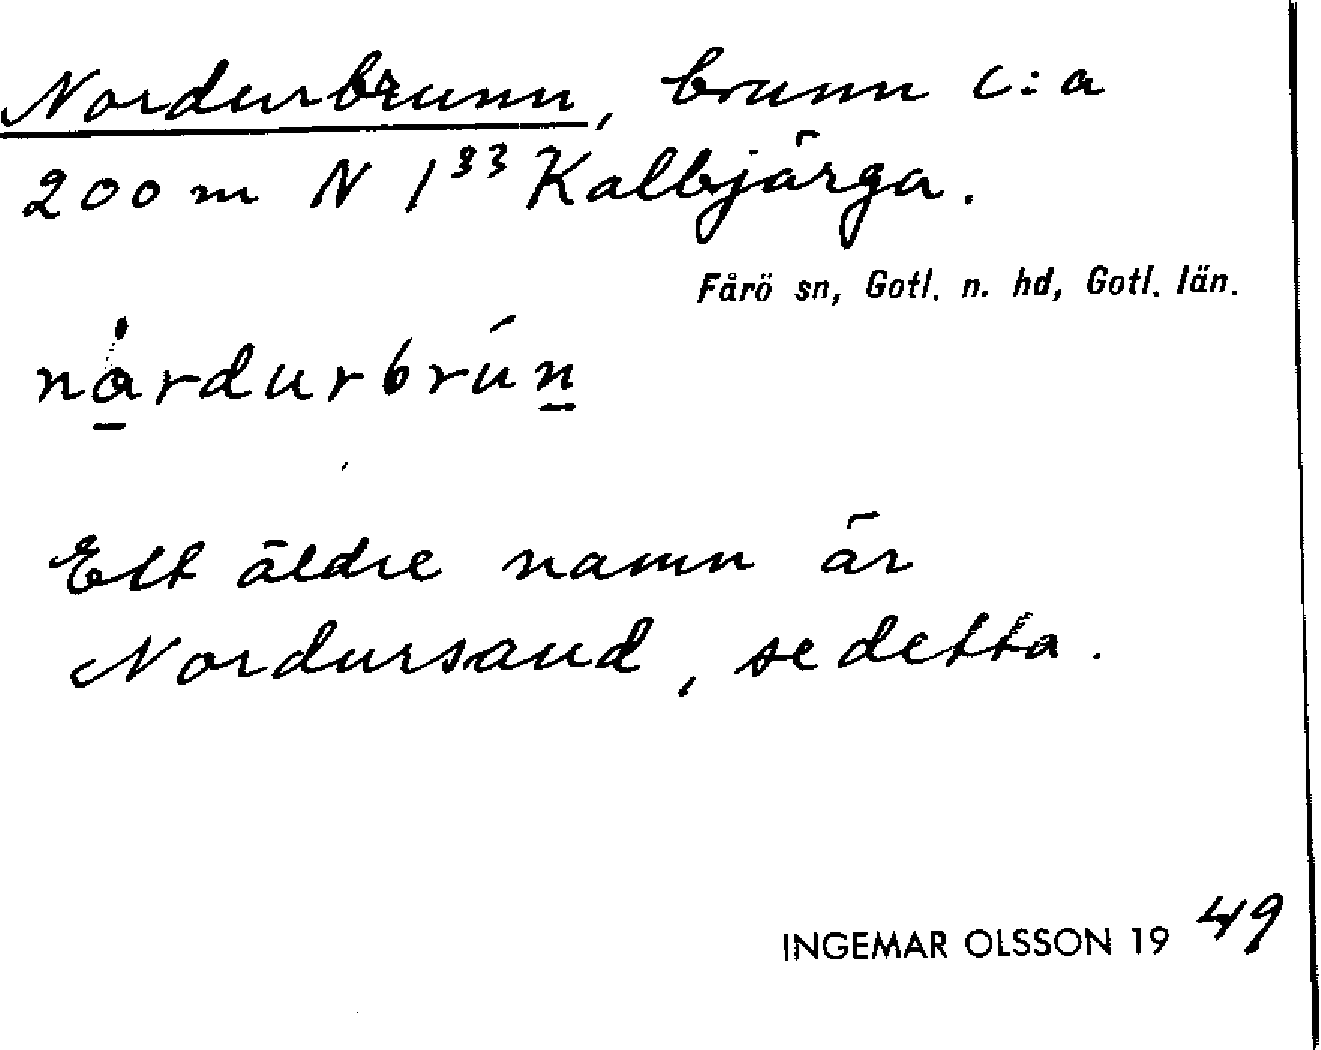 Nordurbrunn, brunn c:a
200 m N 1³³ Kalbjärga.
Fårö sn, Gotl. n. hd, Gotl. län.
nå̱rdurbrún̳
Ett äldre namn är
Nordursand, se detta.
INGEMAR OLSSON 1949